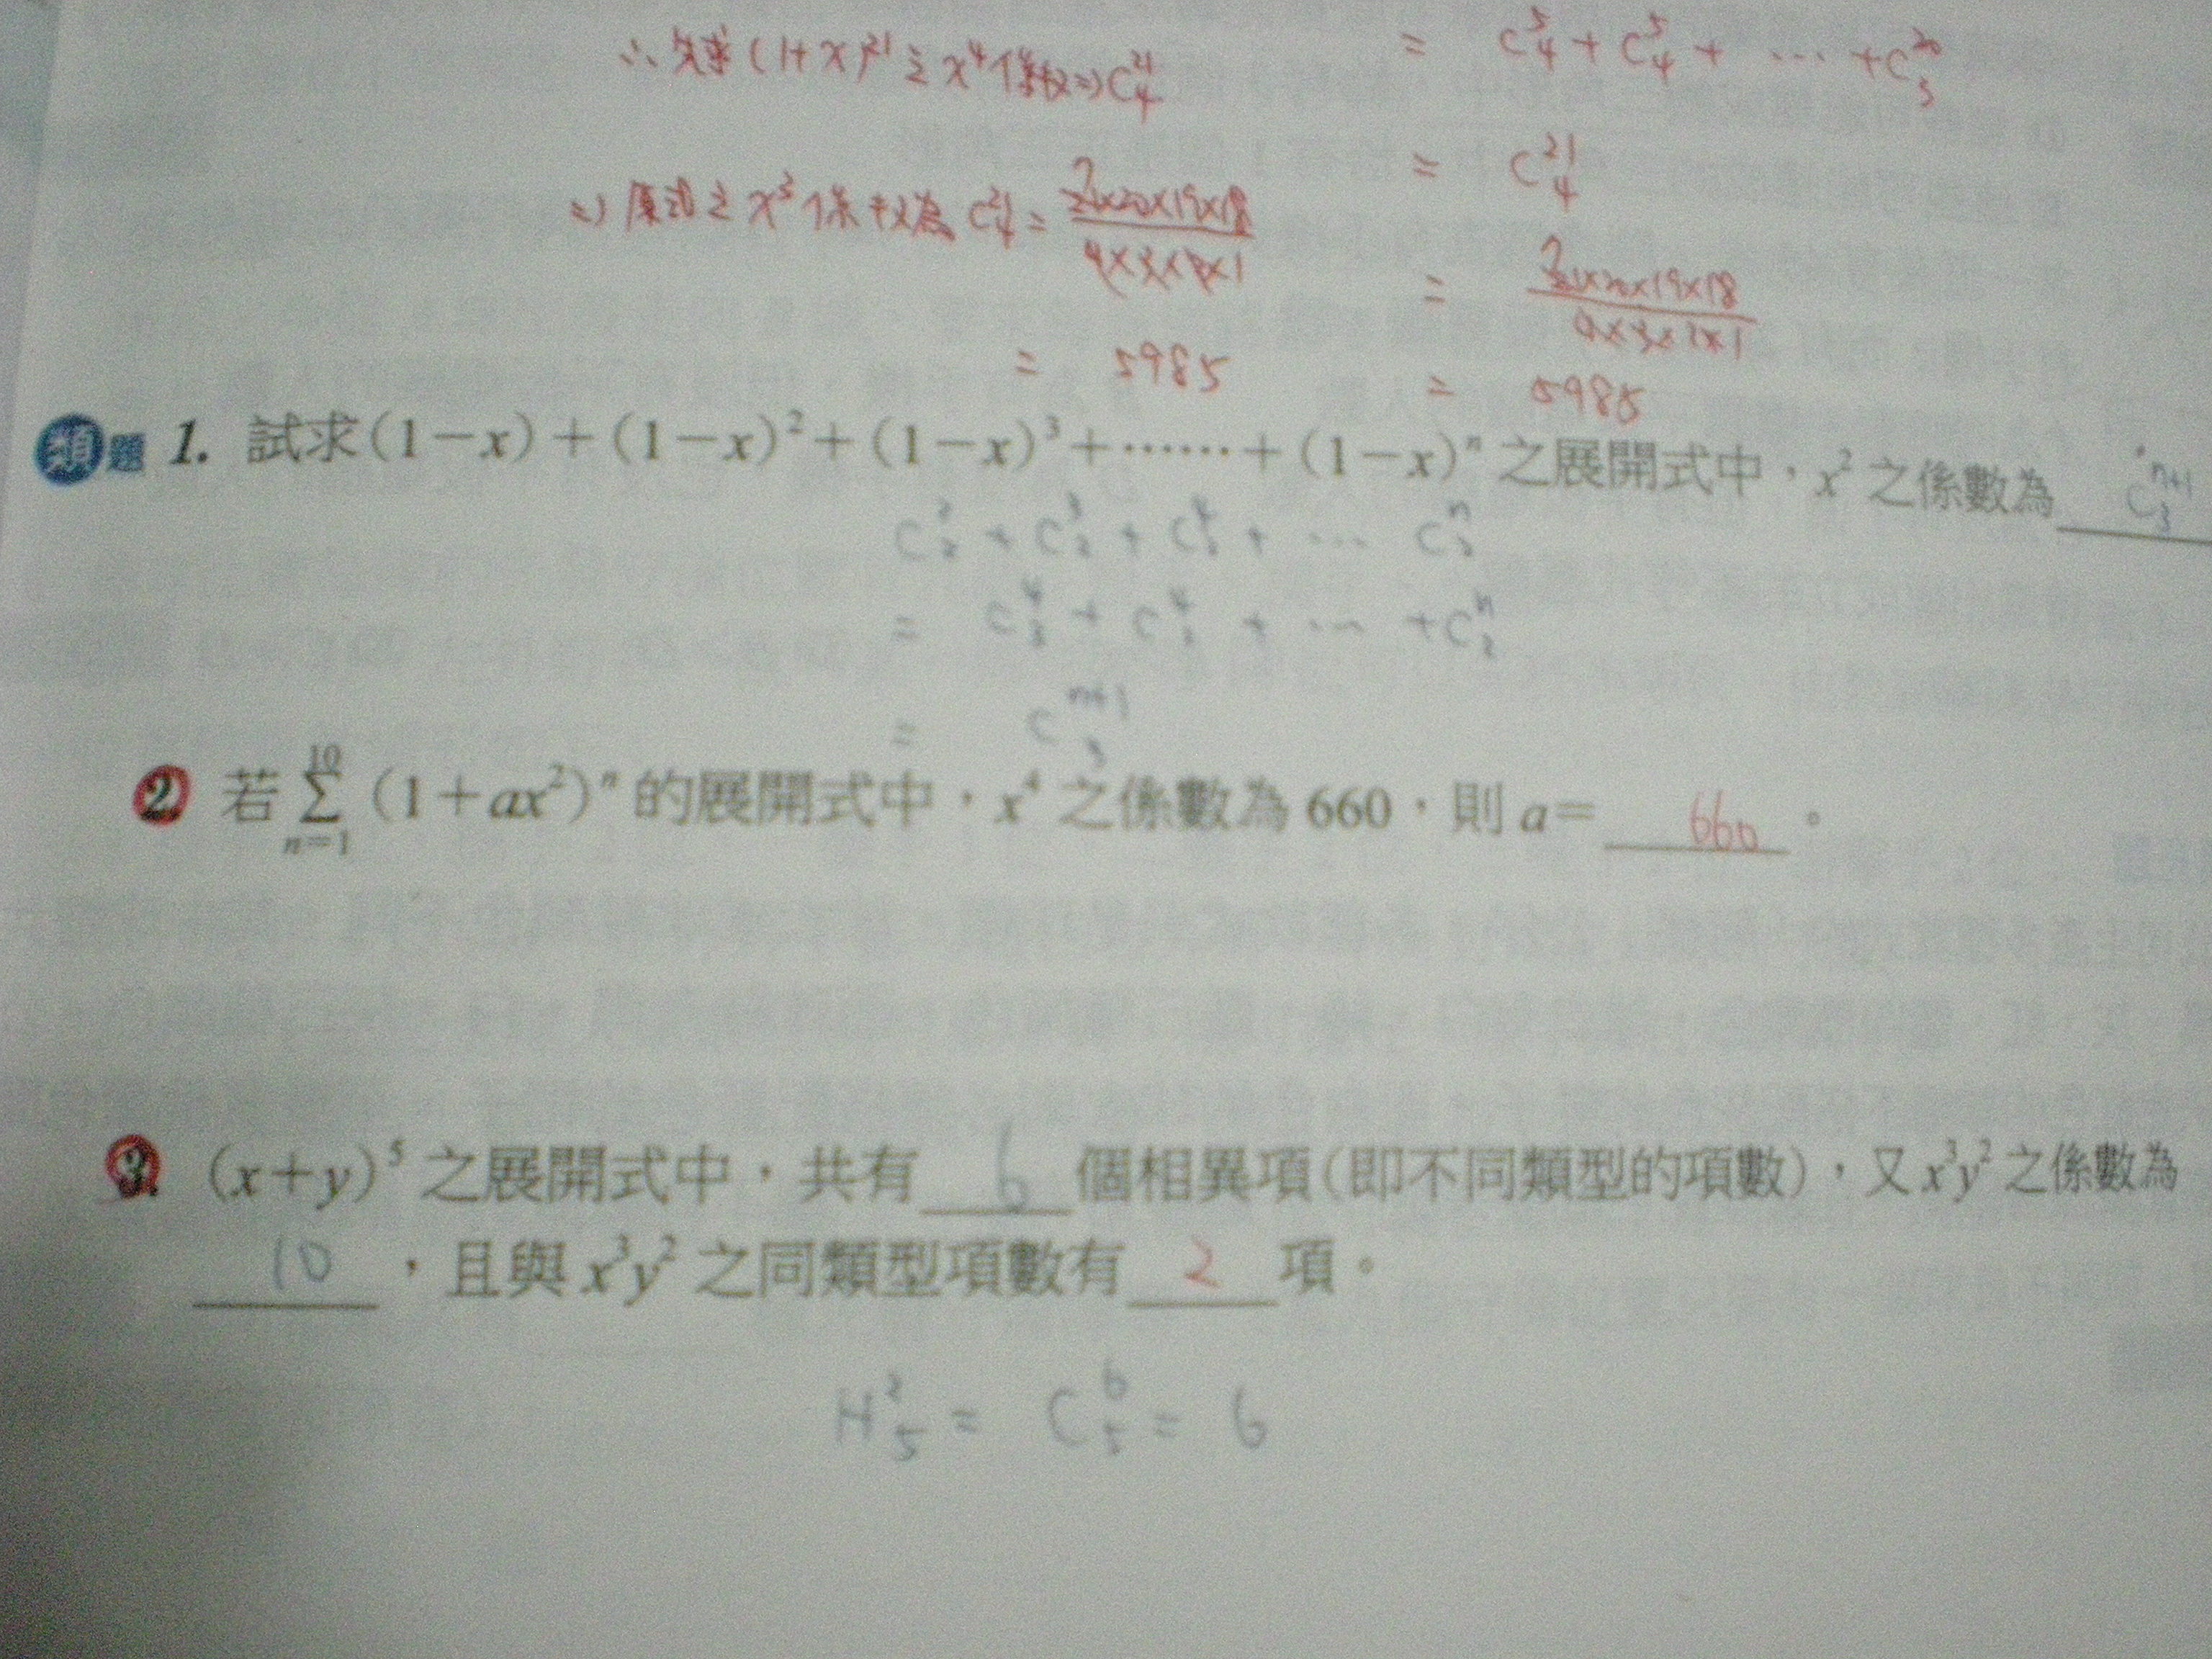 ∴ 先求(1+x)²¹之x⁴係數⇒C²¹₄
= C⁵₄ + C⁵₄ + … + C²⁰₃
⇒原式之x³係數為 C²¹₄ = 21×20×19×18 / 4×3×2×1
= C²¹₄
= 21×20×19×18 / 4×3×2×1
= 5985
= 5985
類題 1. 試求(1-x)+(1-x)²+(1-x)³+……+(1-x)ⁿ之展開式中，x²之係數為 C ⁿ⁺¹₃
C²₂ + C³₂ + C⁴₂ + … Cⁿ₂
= C⁴₃ + C⁴₂ + … + Cⁿ₂
= C ⁿ⁺¹₃
2. 若 10 Σ n=1 (1+ax²)ⁿ 的展開式中，x⁴之係數為660，則a= 660 。
3. (x+y)⁵之展開式中，共有 6 個相異項(即不同類型的項數)，又x³y²之係數為
10 ，且與x³y²之同類型項數有 2 項。
H²₅ = C⁶₅ = 6